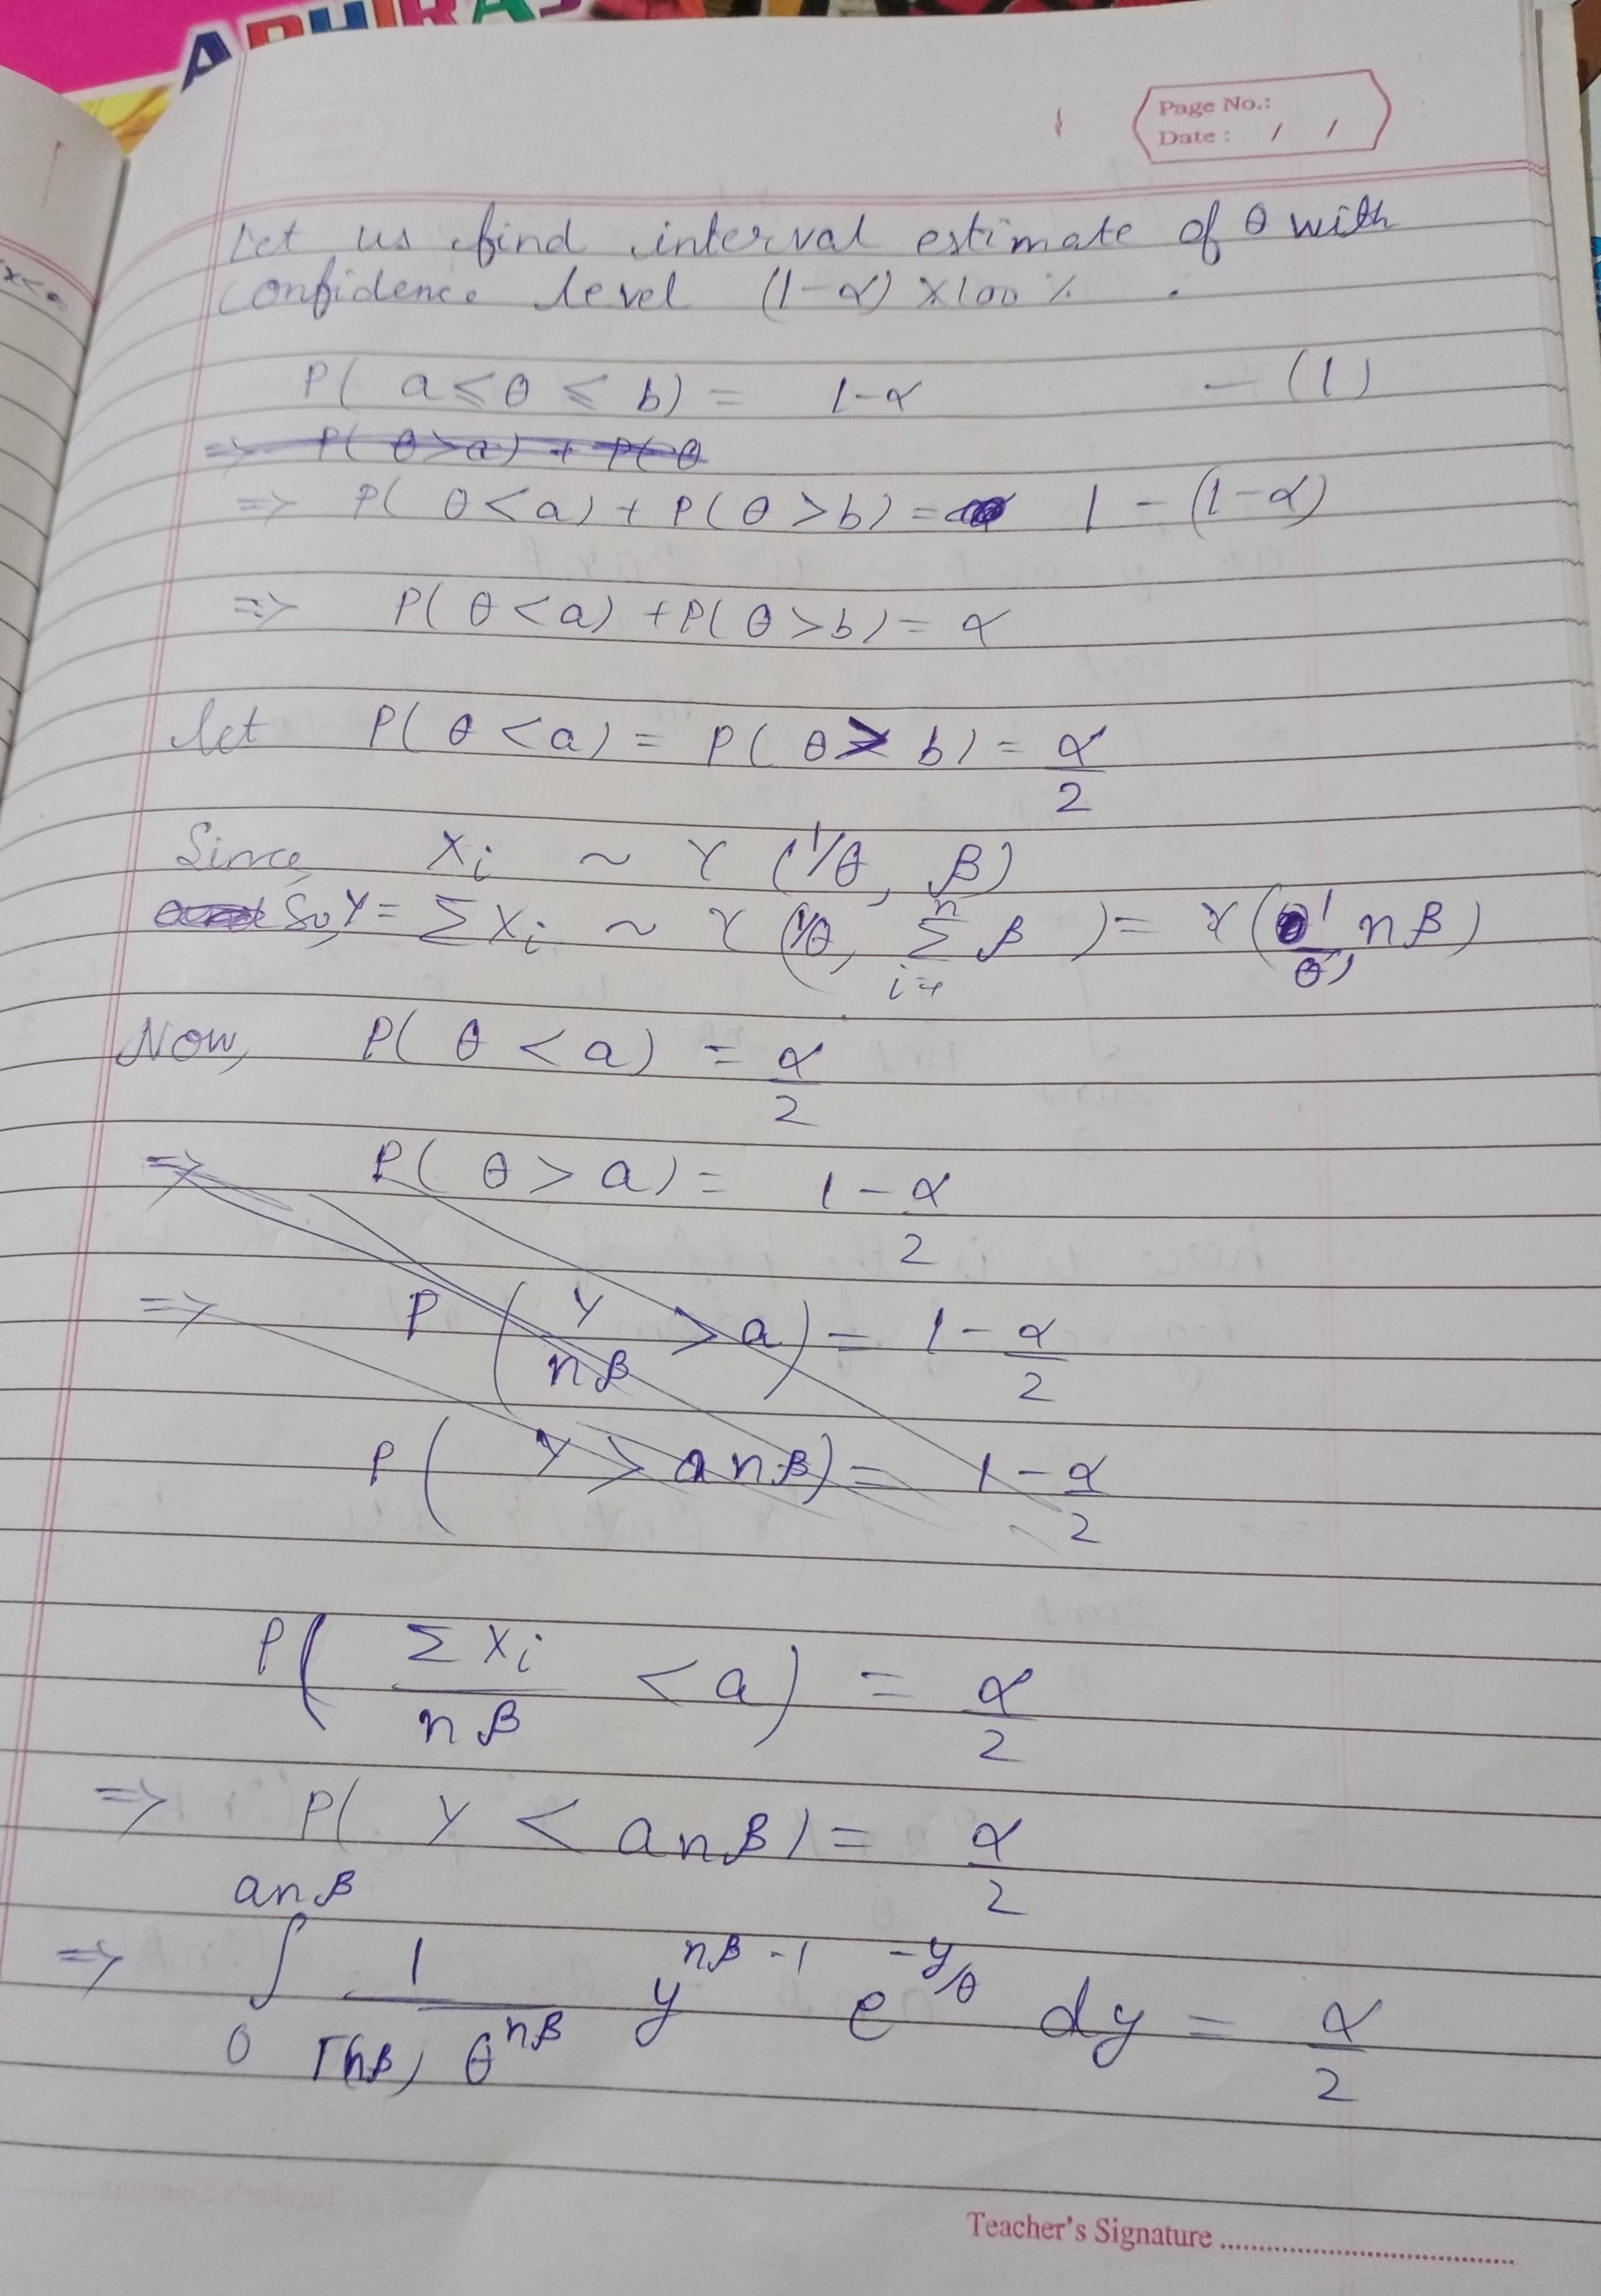 Page No.:
Date : / /
Let us find interval estimate of θ with
confidence level (1-α) ×100 % .
P( a ≤ θ ≤ b) = 1-α — (1)
⇒ P( θ>a) + P( θ
⇒ P( θ < a) + P( θ > b) = 1 - (1-α)
⇒ P( θ < a) + P( θ > b) = α
let P( θ < a) = P( θ > b) = α/2
Since, Xi ~ γ (1/θ, β)
So, Y = Σ Xi ~ γ (1/θ, Σ_{i=1}^{n} β ) = γ (1/θ, nβ)
Now, P( θ < a) = α/2
⇒ P( θ > a) = 1 - α/2
⇒ P ( Y/nβ > a) = 1 - α/2
P ( Y > anβ) = 1 - α/2
P( Σ Xi / nβ < a) = α/2
⇒ P( Y < anβ) = α/2
⇒ ∫_0^{anβ} 1/(Γ(nβ) θ^{nβ}) y^{nβ-1} e^{-y/θ} dy = α/2
Teacher's Signature